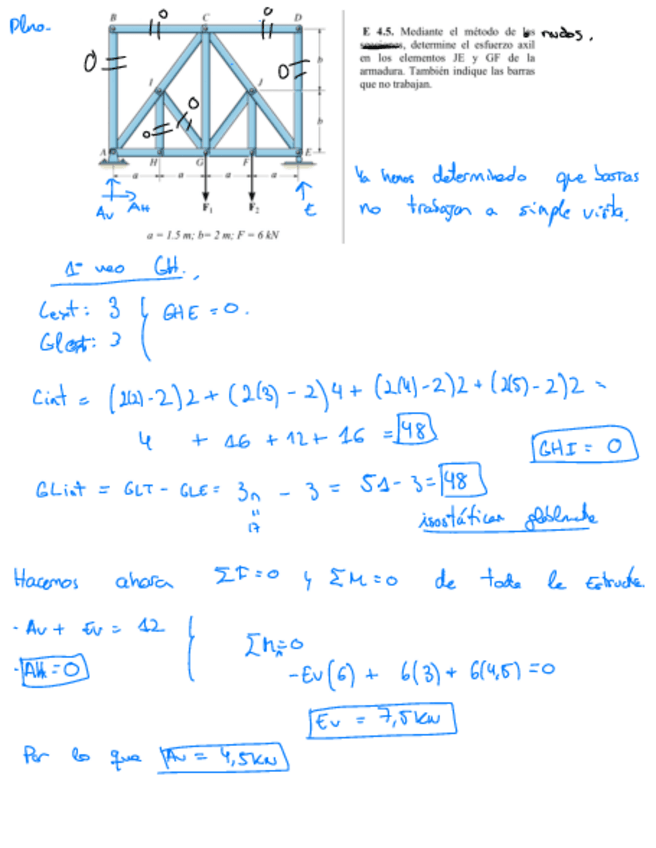 Plno.
B C D
0 0
0 0
0 0
I J
b
b
A H G F E
a a a a
Av AH F1 F2 E
a = 1.5 m; b= 2 m; F = 6 kN
E 4.5. Mediante el método de los nudos.
, determine el esfuerzo axil
en los elementos JE y GF de la
armadura. También indique las barras
que no trabajan.
Ya hemos determinado que barras
no trabajan a simple vista.
1º veo GH.
Cext: 3
GLext: 3
GHE = 0.
Cint = (2(2)-2)2 + (2(3) - 2)4 + (2(4)-2)2 + (2(5)-2)2 =
4 + 16 + 12 + 16 = 48
GHI = 0
GLint = GLT - GLE = 3n - 3 = 51 - 3 = 48
"
17
isostática globalmente
Hacemos ahora ΣF=0 y ΣM=0 de toda la Estructura.
- Av + Ev = 12
- AH = 0
ΣMA=0
-Ev(6) + 6(3) + 6(4,5) = 0
Ev = 7,5kN
Por lo que Av = 4,5kN